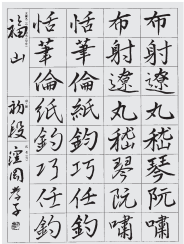 布射遼丸嵇琴阮嘯
布射遼丸嵇琴阮嘯
恬筆倫紙鈞巧任釣
恬筆倫紙鈞巧任釣
福山 初段 窪園孝子